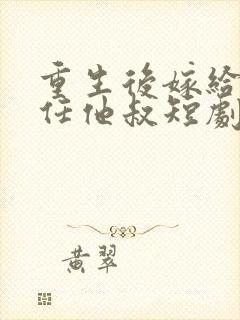 重生後嫁給
任他叔短劇
黃翠